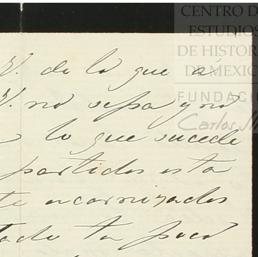 CENTRO DE
ESTUDIOS
DE HISTORI
DE MÉXICO
FUNDACI
Carlos Sl
V. de lo que a
V. no sepa y no
lo que sucede
partidos esta
te encarnizados
tado tan poco